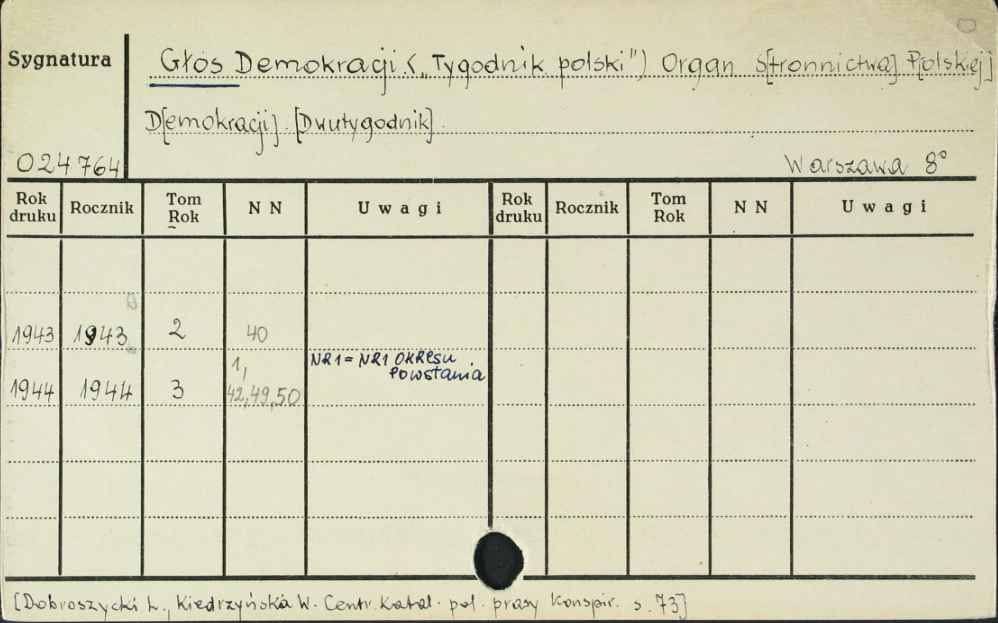 Sygnatura
Głos Demokracji. („Tygodnik polski") Organ S[tronnictwa] P[olskiej]
D[emokracji]. [Dwutygodnik].
024764
Warszawa 8°
Rok druku Rocznik Tom Rok NN Uwagi Rok druku Rocznik Tom Rok NN Uwagi
1943 1943 2 40
1944 1944 3 1, 42,49,50 NR 1 = NR 1 OKRESU POWSTANIA
[Dobroszycki L., Kiedrzyńska W. Centr. Katal. pol. prasy konspir. s. 73]